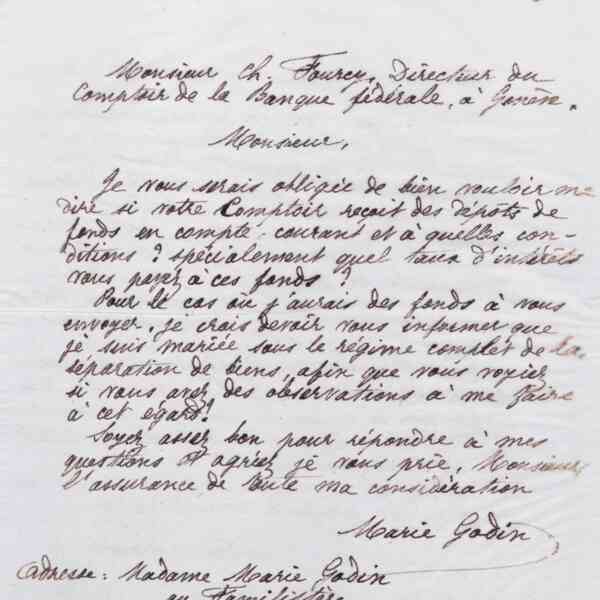 Monsieur Ch. Fourcy, Directeur du
Comptoir de la Banque fédérale, à Genève.
Monsieur,
Je vous serais obligée de bien vouloir me
dire si votre Comptoir reçoit des dépôts de
fonds en compte-courant et à quelles con-
ditions ? spécialement quel taux d'intérêts
vous payez à ces fonds ?
Pour le cas où j'aurais des fonds à vous
envoyer, je crois devoir vous informer que
je suis mariée sous le régime complet de la
séparation de biens, afin que vous voyier
si vous avez des observations à me faire
à cet égard.
Soyez assez bon pour répondre à mes
questions et agréez je vous prie, Monsieur
l'assurance de toute ma considération
Marie Godin
Adresse : Madame Marie Godin
au Familistère